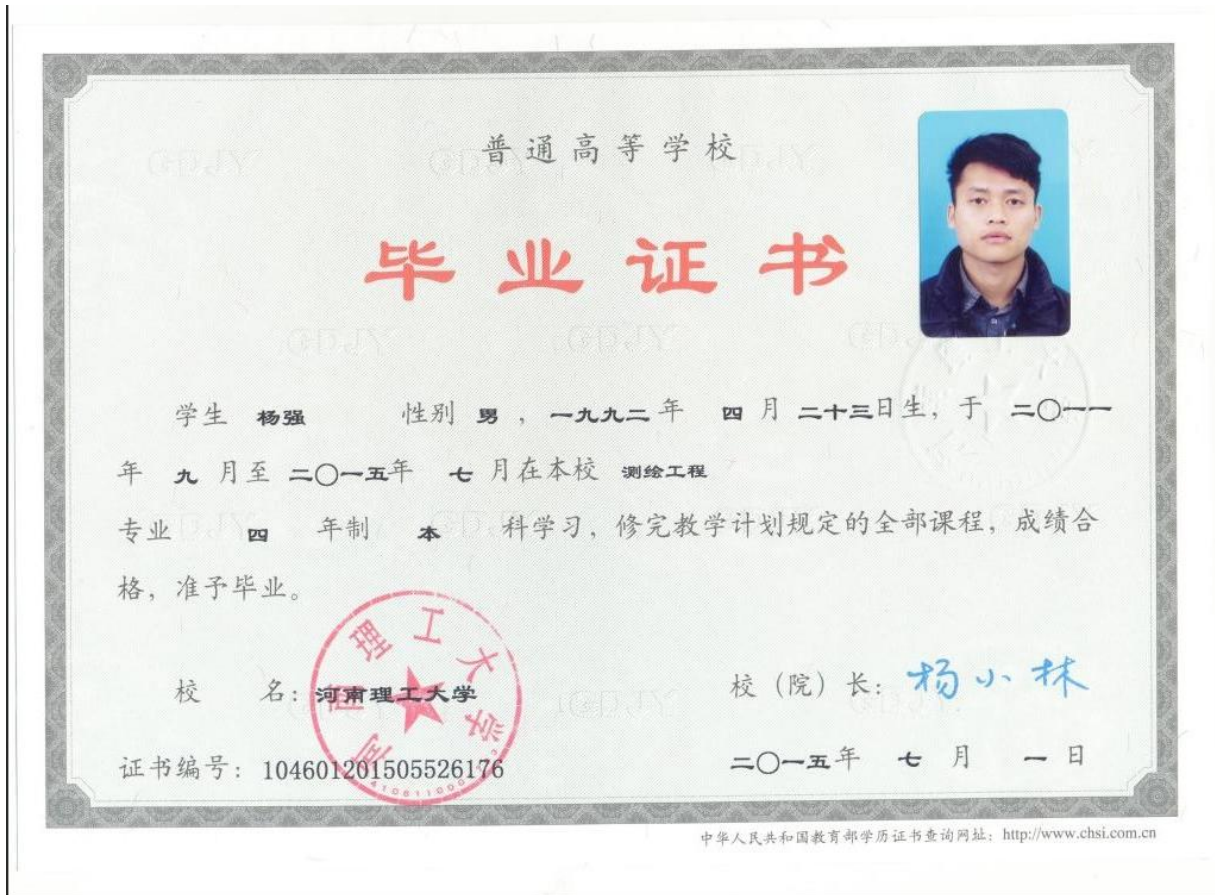 普通高等学校
毕业证书
学生 杨强 性别 男 ，一九九二 年 四 月 二十三日生，于 二〇一一
年 九 月至 二〇一五年 七 月在本校 测绘工程
专业 四 年制 本 科学习，修完教学计划规定的全部课程，成绩合
格，准予毕业。
校 名：河南理工大学
校（院）长：杨小林
证书编号：104601201505526176
二〇一五年 七 月 一 日
中华人民共和国教育部学历证书查询网址：http://www.chsi.com.cn
河南理工大学